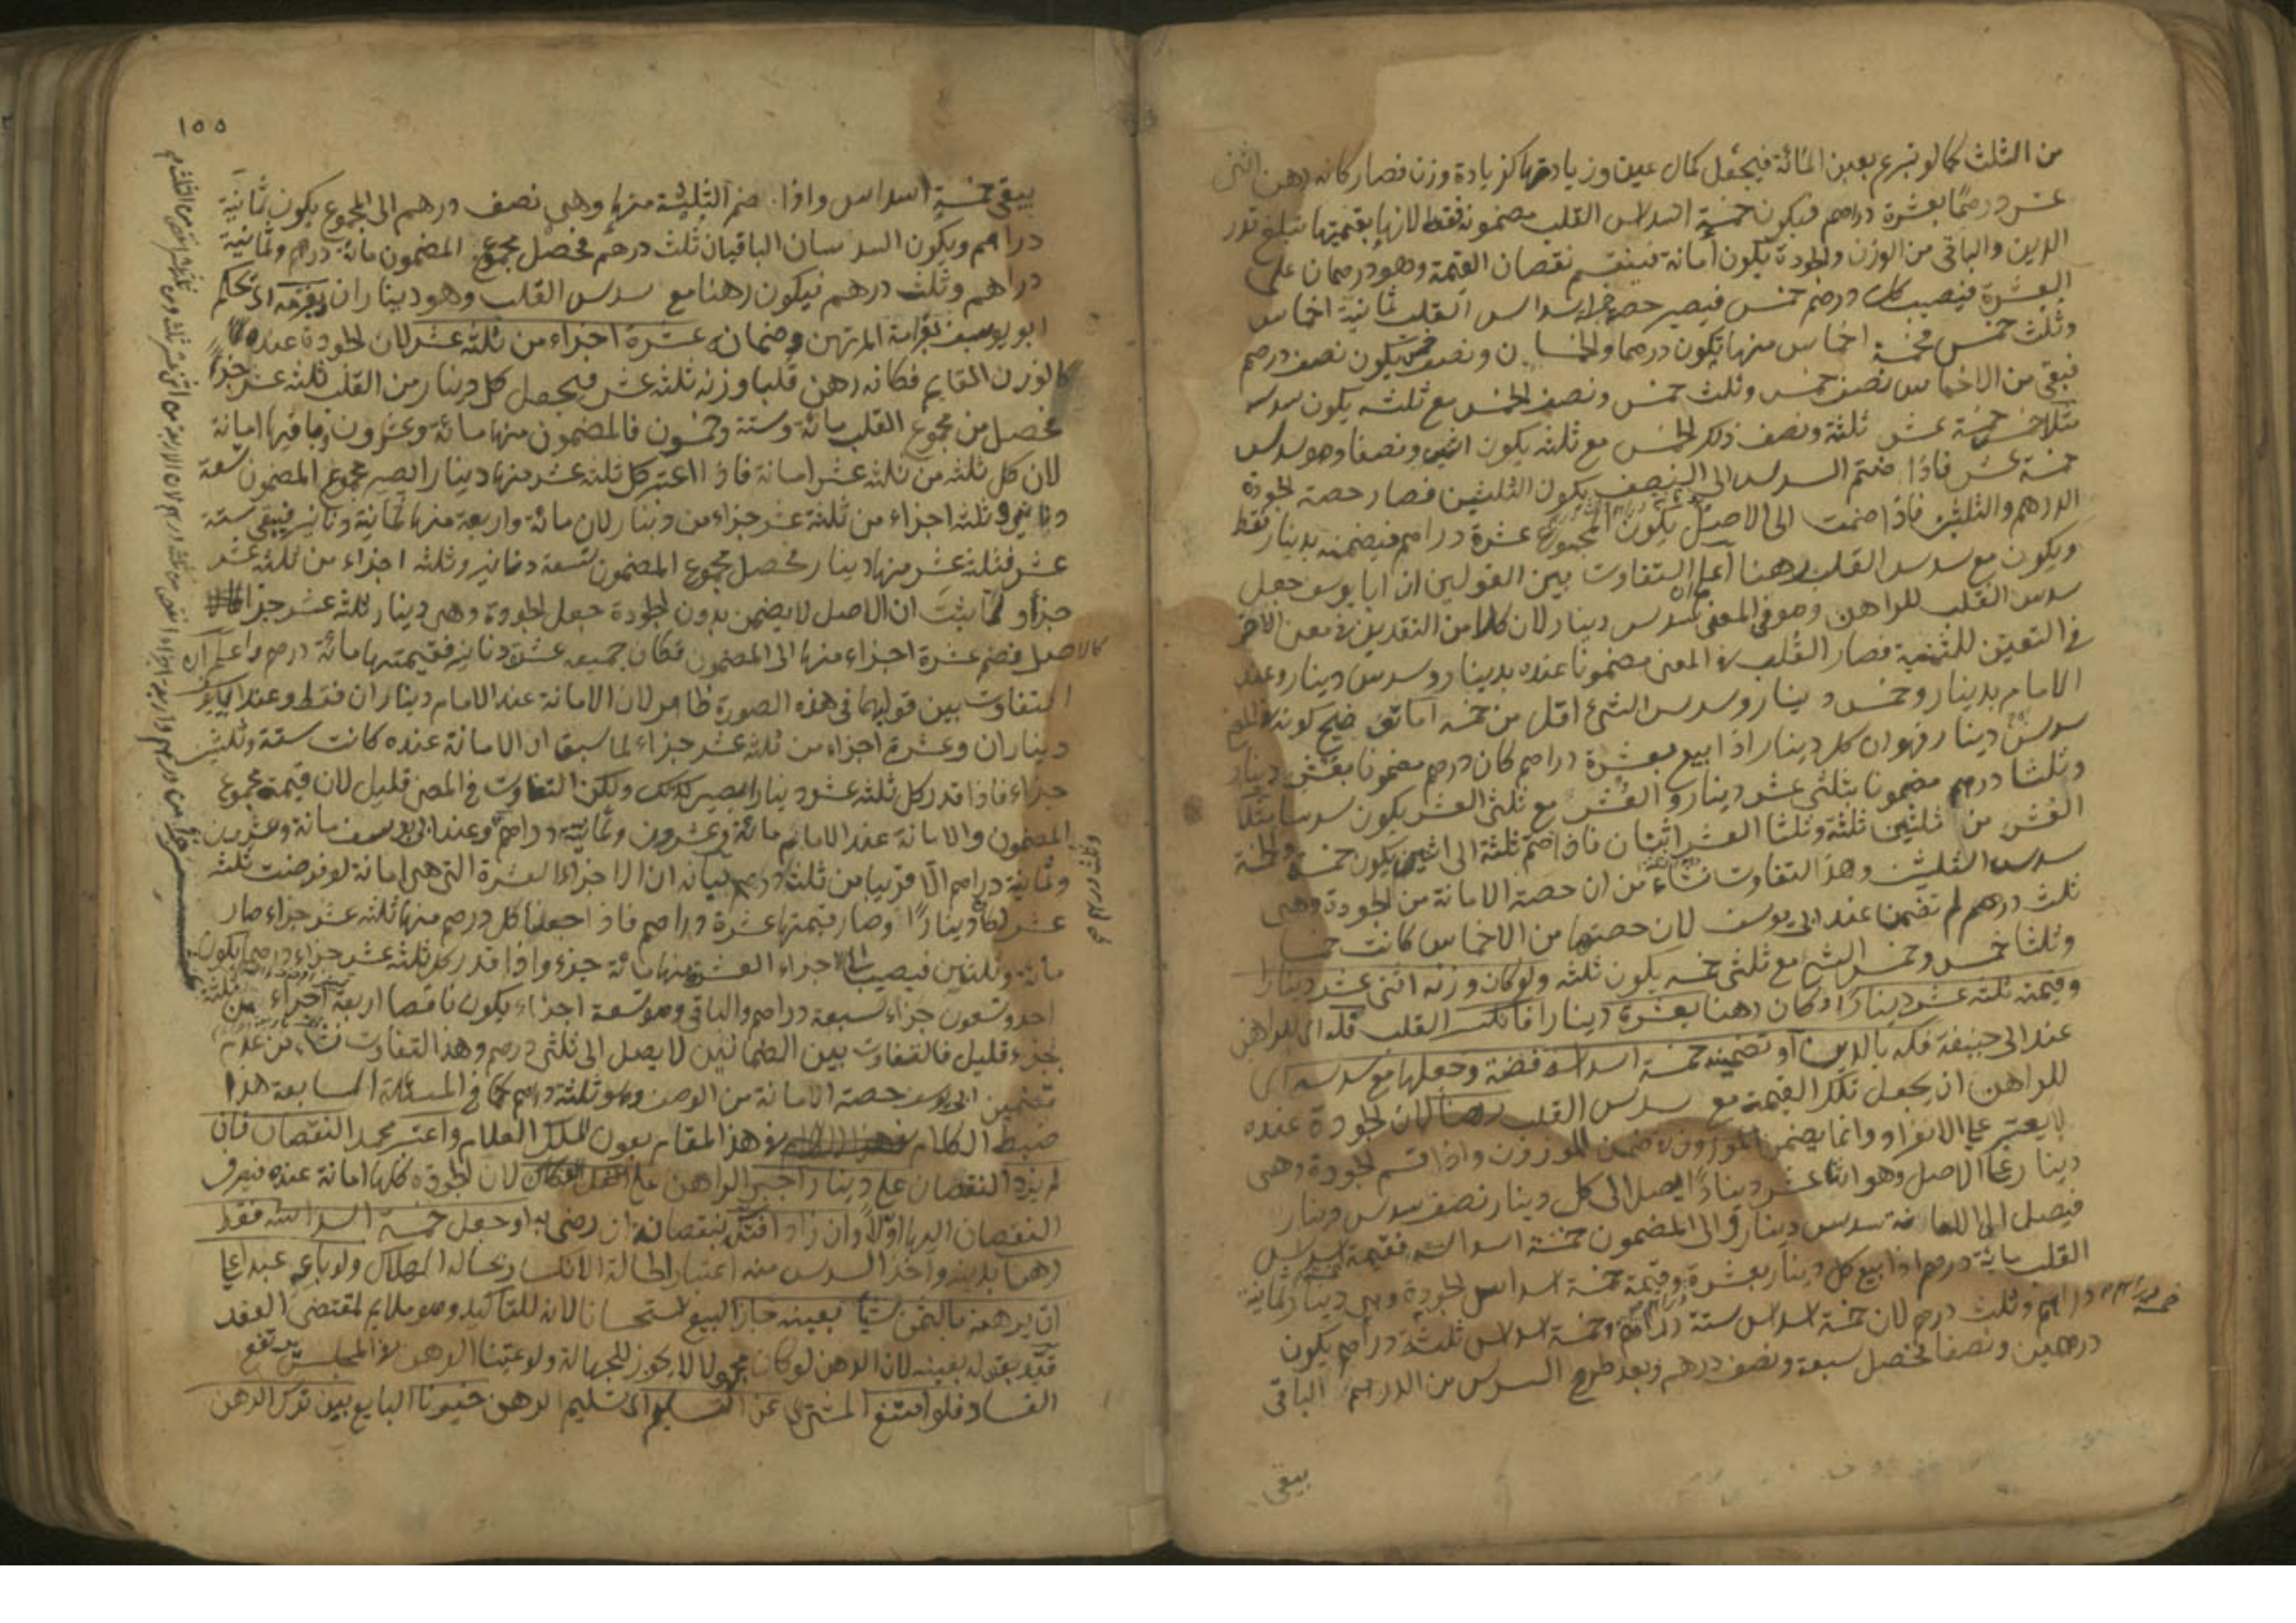 من الثلث كما لو تبرع بعين المائة فيجعل كمال عين وزيادتها كزيادة وزن فصار كانه رهن اثنى
عشر درهمًا بعشرة دراهم فيكون خمسة اسداس القلب مضمونه فقط لانها بقيمتها تبلغ قدر
الدين والباقى من الوزن والجودة يكون أمانة فينقسم نقصان القيمة وهو درهمان على
العشرة فيصيب كل درهم خمس فيصير حصة اسداس القلب ثمانية اخماس
وثلث خمس فخمسة اخماس منها يكون درهما والخمسان ونصف خمس يكون نصف درهم
فبقى من الاخماس نصف خمس وثلث خمس ونصف الخمس مع ثلثه يكون سدسه
مثلا خمس خمسة عشر ثلثة ونصف ذلك الخمس مع ثلثه يكون اثنين ونصفا وهو سدس
خمسة عشر فاذا ضم السدس الى النصف يكون الثلثين فصار حصة الجودة
الدرهم والثلثين فاذا ضمت الى الاصل يكون المجموع عشرة دراهم فيضمنه بدينار فقط
ويكون مع سدس القلب رهنا اعلم التفاوت بين القولين ان ابا يوسف جعل
سدس القلب للراهن وهو فى المعنى سدس دينار لان كلا من النقدين فى معنى الاخر
فى التعين للثمنية فصار القلب فى المعنى مضمونا عنده بدينار وسدس دينار وعند
الامام بدينار وخمس دينار وسدس الشئ اقل من خمسه اما توضيح كونه
سدس دينار فهو ان كل دينار اذا ابيع بعشرة دراهم كان درهم مضمونا بعشر دينار
وثلثا درهم مضمونا بثلثى عشر دينار والعشر مع ثلثى العشر يكون سدسا مثلا
العشر من ثلثين ثلثة وثلثا العشر اثنان فاذا ضم ثلثة الى اثنين يكون خمسة والخمسة
سدس الثلثين وهذا التفاوت نشاء من ان حصة الامانة من الجودة وهى
ثلث درهم لم تضمن عند ابى يوسف لان حصتها من الاخماس كانت خمسا
وثلثا خمس وخمس الشئ مع ثلثى خمسه يكون ثلثه ولو كان وزنه اثنى عشر دينارا
وقيمته ثلثة عشر دينارا وكان رهنا بعشرة دينارا فانكسر القلب فله اى للراهن
عند ابى حنيفة فكه بالدين او تضمينه خمسة اسداسه فضة وجعلها مع سدسه اى
للراهن ان يجعل تلك القيمة مع سدس القلب رهنا لان الجودة عنده
لا يعتبر على الانفراد وانما يضمن الموزون فى ضمن الموزون واذا قسم الجودة وهى
دينار على الاصل وهو اثنا عشر دينارا يصل الى كل دينار نصف سدس دينار
فيصل الى الامانة سدس دينار والى المضمون خمسة اسداسه فقيمة خمسة اسداس
القلب مائة درهم اذا بيع كل دينار بعشرة وقيمة خمسة اسداس الجودة وهى دينار ثمانية
دراهم وثلث درهم لان خمسة اسداس ستة دراهم خمسة وخمسة اسداس ثلثة دراهم يكون
درهمين ونصفا فحصل سبعة ونصف درهم وبعد طرح السدس من الدرهم الباقى
يبقى
١٥٥
يبقى خمسة اسداس واذا ضم الثلثة منها وهى نصف درهم الى المجموع يكون ثمانية
دراهم ويكون السدسان الباقيان ثلث درهم فحصل مجموع المضمون مائة درهم وثمانية
دراهم وثلث درهم فيكون رهنا مع سدس القلب وهو ديناران بغرمه اى يحكم
ابو يوسف بغرامة المرتهن وضمانه عشرة اجزاء من ثلثة عشر لان الجودة عنده
كالوزن القايم فكانه رهن قلبا وزنه ثلثة عشر فيجعل كل دينار من القلب ثلثة عشر جزءا
فحصل من مجموع القلب مائة وستة وخمسون فالمضمون منها مائة وعشرون وباقيها امانة
لان كل ثلثه من ثلثه عشر امانة فاذا اعتبر كل ثلثه عشر منها دينارا يصير مجموع المضمون تسعة
دنانير وثلثه اجزاء من ثلثة عشر جزاء من دينار لان مائة واربعة منها ثمانية دنانير فيبقى ستة
عشر فثلثة عشر منها دينار فحصل مجموع المضمون تسعة دنانير وثلثه اجزاء من ثلثه عشر
جزأ ولما ثبت ان الاصل لا يضمن بدون الجودة جعل الجودة وهى دينار ثلثة عشر جزأ
كالاصل فضم عشرة اجزاء منها الى المضمون فكان جميعه عشرة دنانير فقيمتها مائة درهم واعلم ان
التفاوت بين قوليهما فى هذه الصورة ظاهر لان الامانة عند الامام ديناران فقط وعند ابى يوسف
ديناران وعشرة اجزاء من ثلثه عشر جزاء لما سبق ان الامانة عنده كانت ستة وثلثين
جزاء فاذا قدر كل ثلثه عشر دينارا يصير كذلك ولكن التفاوت فى المعنى قليل لان قيمة مجموع
المضمون والامانة عند الامام مائة وعشرون وثمانية دراهم وعند ابى يوسف مائة وعشرين
وثمانية دراهم الا قريبا من ثلث درهم بيانه ان الاجزاء العشرة التى هى امانة لو فرضت ثلثه
عشر لكان دينارًا وصار قيمتها عشرة دراهم فاذا جعلنا كل درهم منها ثلثه عشر جزاء صار
مائة وثلثين فيصيب الاجزاء العشرة منها مائة جزء واذا قدر كل ثلثه عشر جزاء درهما يكون
احد وتسعون جزاء سبعة دراهم والباقى وهو تسعة اجزاء يكون ناقصا اربعة اجزاء من ثلثة
بجزء قليل فالتفاوت بين الضمانين لا يصل الى ثلثى درهم وهذا التفاوت نشاء من عدم
تضمين ابى يوسف حصة الامانة من الوصف وهو ثلثة دراهم كما فى المسئلة السابعة هذا
ضبط الكلام فى هذا المقام بعون الملك العلام واعتبر محمد النقصان فان
لم يزد النقصان على دينار اجبر الراهن على الفكاك لان الجودة كلها امانة عنده فيصرف
النقصان اليها اولا وان زاد افتكه بنقصانه ان رضى به او جعل خمسة اسداسه فقط
رهنا بدينه واخذ السدس منه اعتبارا لحالة الانكسار بحالة الهلاك ولو باع عبدا على
ان يرهنه بالثمن شيا بعينه جاز البيع استحسانا لانه للتاكيد وهو ملايم لمقتضى العقد
قيد بقوله بعينه لان الرهن لو كان مجهولا لا يجوز للجهالة ولو عينا الرهن فى المجلس يرتفع
الفساد فلو امتنع المشترى عن التسليم اى تسليم الرهن خيرنا البايع بين ترك الرهن
وثلث درهم